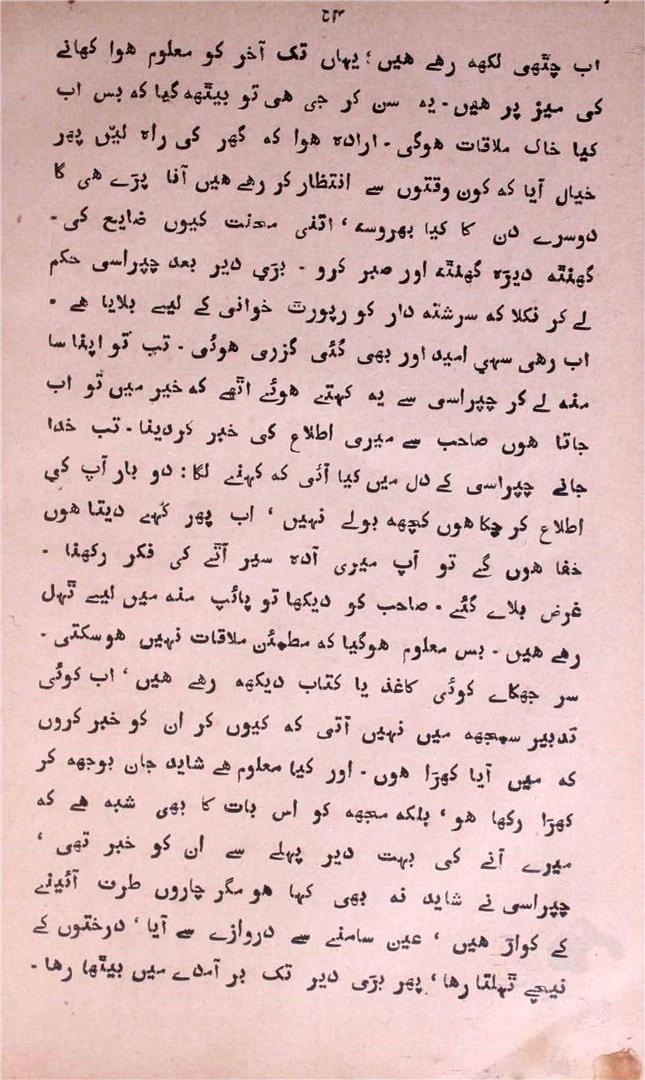 اب چٹھی لکھہ رہے ہیں؛ یہاں تک آخر کو معلوم ہوا کھانے
کی میز پر ہیں۔ یہ سن کر جی ہی تو بیٹھہ گیا کہ بس اب
کیا خاک ملاقات ہوگی۔ ارادہ ہوا کہ گھر کی راہ لیں پھر
خیال آیا کہ کون وقتوں سے انتظار کر رہے ہیں آنا پڑے ہی گا
دوسرے دن کا کیا بھروسہ، اتنی محنت کیوں ضایع کی۔
گھنٹہ ڈیڑہ گھنٹہ اور صبر کرو۔ بڑی دیر بعد چپراسی حکم
لے کر نکلا کہ سرشتہ دار کو رپورٹ خوانی کے لیے بلایا ہے۔
اب رہی سہی امید اور بھی گئی گزری ہوئی۔ تب تو اپنا سا
منہ لے کر چپراسی سے یہ کہتے ہوئے اٹھے کہ خیر میں تو اب
جاتا ہوں صاحب سے میری اطلاع کی خبر کردینا۔ تب خدا
جانے چپراسی کے دل میں کیا آئی کہ کہنے لگا: دو بار آپ کی
اطلاع کر چکا ہوں کچھہ بولے نہیں، اب پھر کہے دیتا ہوں
خفا ہوں گے تو آپ میری آدہ سیر آٹے کی فکر رکھنا۔
غرض بلاے گئے۔ صاحب کو دیکھا تو پائپ منہ میں لیے ٹہل
رہے ہیں۔ بس معلوم ہوگیا کہ مطمئن ملاقات نہیں ہوسکتی۔
سر جھکاے کوئی کاغذ یا کتاب دیکھہ رہے ہیں، اب کوئی
تدبیر سمجھہ میں نہیں آتی کہ کیوں کر ان کو خبر کروں
کہ میں آیا کھڑا ہوں۔ اور کیا معلوم ہے شاید جان بوجھہ کر
کھڑا رکھا ہو، بلکہ مجھہ کو اس بات کا بھی شبہ ہے کہ
میرے آنے کی بہت دیر پہلے سے ان کو خبر تھی،
چپراسی نے شاید نہ بھی کہا ہو مگر چاروں طرف آئینے
کے کواڑ ہیں، عین سامنے سے دروازے سے آیا، درختوں کے
نیچے ٹہلتا رہا، پھر بڑی دیر تک برآمدے میں بیٹھا رہا۔